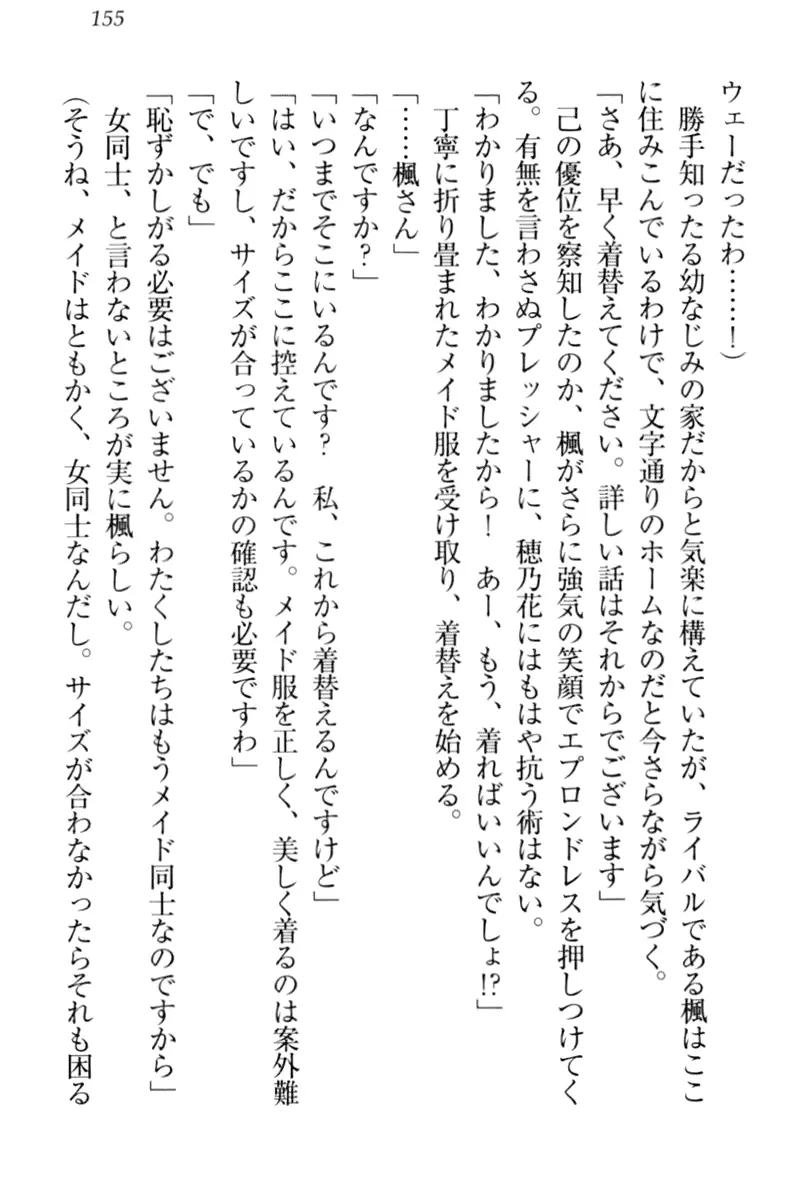 155
ウェーだったわ……！）
　勝手知ったる幼なじみの家だからと気楽に構えていたが、ライバルである楓はここ
に住みこんでいるわけで、文字通りのホームなのだと今さらながら気づく。
「さあ、早く着替えてください。詳しい話はそれからでございます」
　己の優位を察知したのか、楓がさらに強気の笑顔でエプロンドレスを押しつけてく
る。有無を言わさぬプレッシャーに、穂乃花にはもはや抗う術はない。
「わかりました、わかりましたから！　あー、もう、着ればいいんでしょ!?」
　丁寧に折り畳まれたメイド服を受け取り、着替えを始める。
「……楓さん」
「なんですか？」
「いつまでそこにいるんです？　私、これから着替えるんですけど」
「はい、だからここに控えているんです。メイド服を正しく、美しく着るのは案外難
しいですし、サイズが合っているかの確認も必要ですわ」
「で、でも」
「恥ずかしがる必要はございません。わたくしたちはもうメイド同士なのですから」
　女同士、と言わないところが実に楓らしい。
（そうね、メイドはともかく、女同士なんだし。サイズが合わなかったらそれも困る